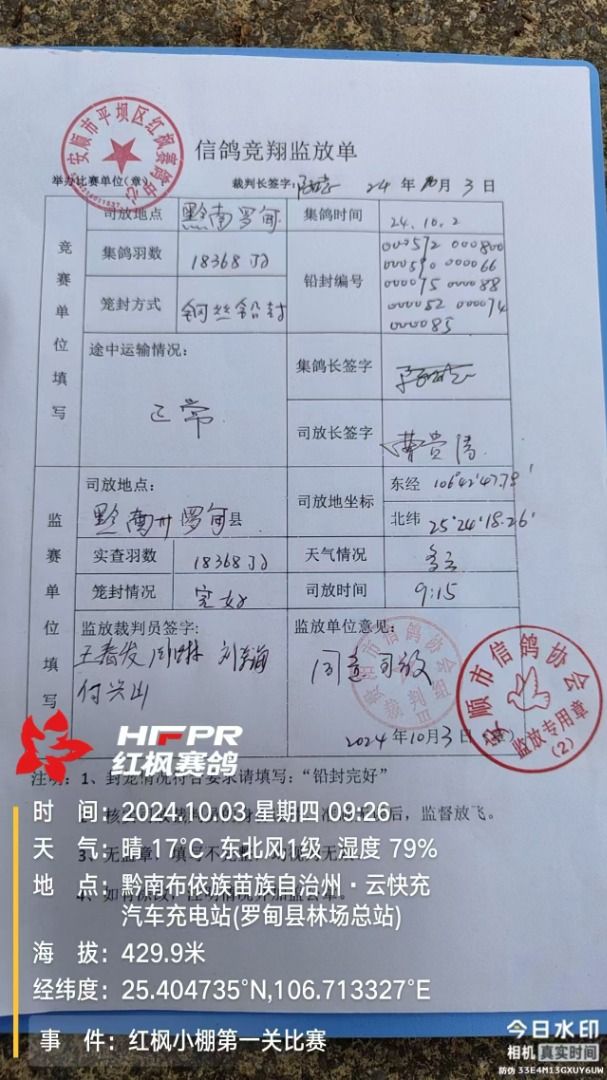 安顺市平坝区红枫赛鸽中心
信鸽竞翔监放单
举办比赛单位(章) 裁判长签字: 24 年 10月 3 日
竞赛单位填写
司放地点 黔南罗甸 集鸽时间 24.10.2
集鸽羽数 18368 羽 铅封编号
000572 000800
000590 000066
000075 000088
000052 000074
000085
笼封方式 钢丝铅封
途中运输情况: 正常
集鸽长签字
司放长签字
监赛单位填写
司放地点: 黔南州罗甸县
司放地坐标 东经 106°42'47.79'
北纬 25°24'18.26'
实查羽数 18368 羽 天气情况 多云
笼封情况 完好 司放时间 9:15
监放裁判员签字: 监放单位意见:
王春发 刘海
付兴山
同意司放
2024 年10月3日
安顺市信鸽协会
裁判组
III
安顺市信鸽协会
监放专用章
(2)
HFPR
红枫赛鸽
注明: 1、封笼情况符合要求请填写:“铅封完好”
后,监督放飞。
时 间: 2024.10.03 星期四 09:26
天 气: 晴 17°C 东北风1级 湿度 79%
地 点: 黔南布依族苗族自治州·云快充
汽车充电站(罗甸县林场总站)
海 拔: 429.9米
经纬度: 25.404735°N,106.713327°E
事 件: 红枫小棚第一关比赛
今日水印
相机 真实时间
防伪 33E4M13GXUY6UW